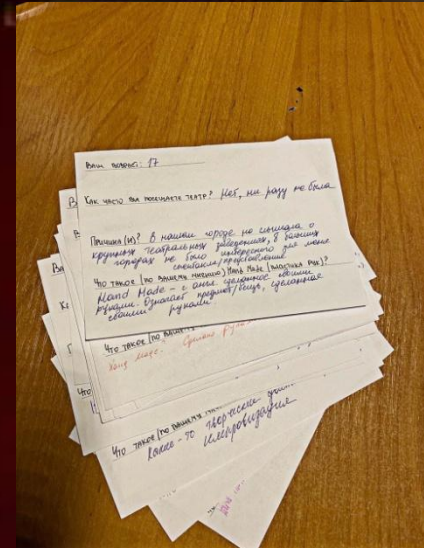 Ваш возраст: 17
Как часто вы посещаете театр? Нет, ни разу не была
Причина(ы)? В нашем городе не слышала о
крупных театральных заведениях, в больших
городах не было интересного для меня
спектакля/представления
Что такое (по вашему мнению) Hand Made (пластика рук)?
Hand Made - с англ. сделанное своими
руками. Означает предмет/вещь, сделанные
своими руками.
Что такое (по вашему
Сделано
Что такое (по вашему
Какие-то творческие
импровизация